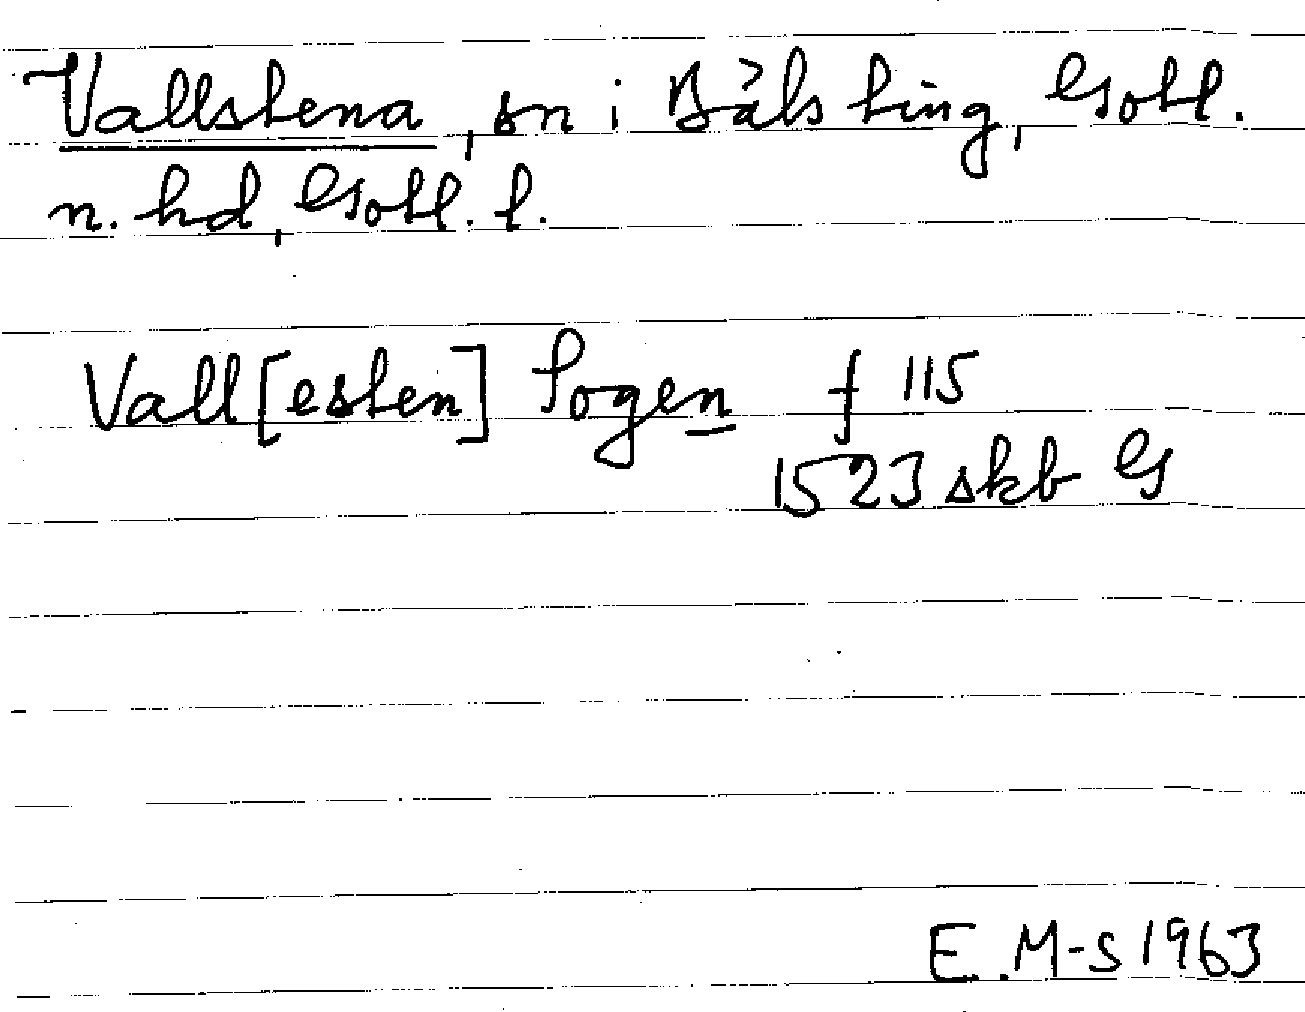 Vallstena, sn i Bäls ting, Gotl.
n. hd, Gotl. l.
Vall[esten] Sogen f 115
1523 skb G
E. M-S 1963